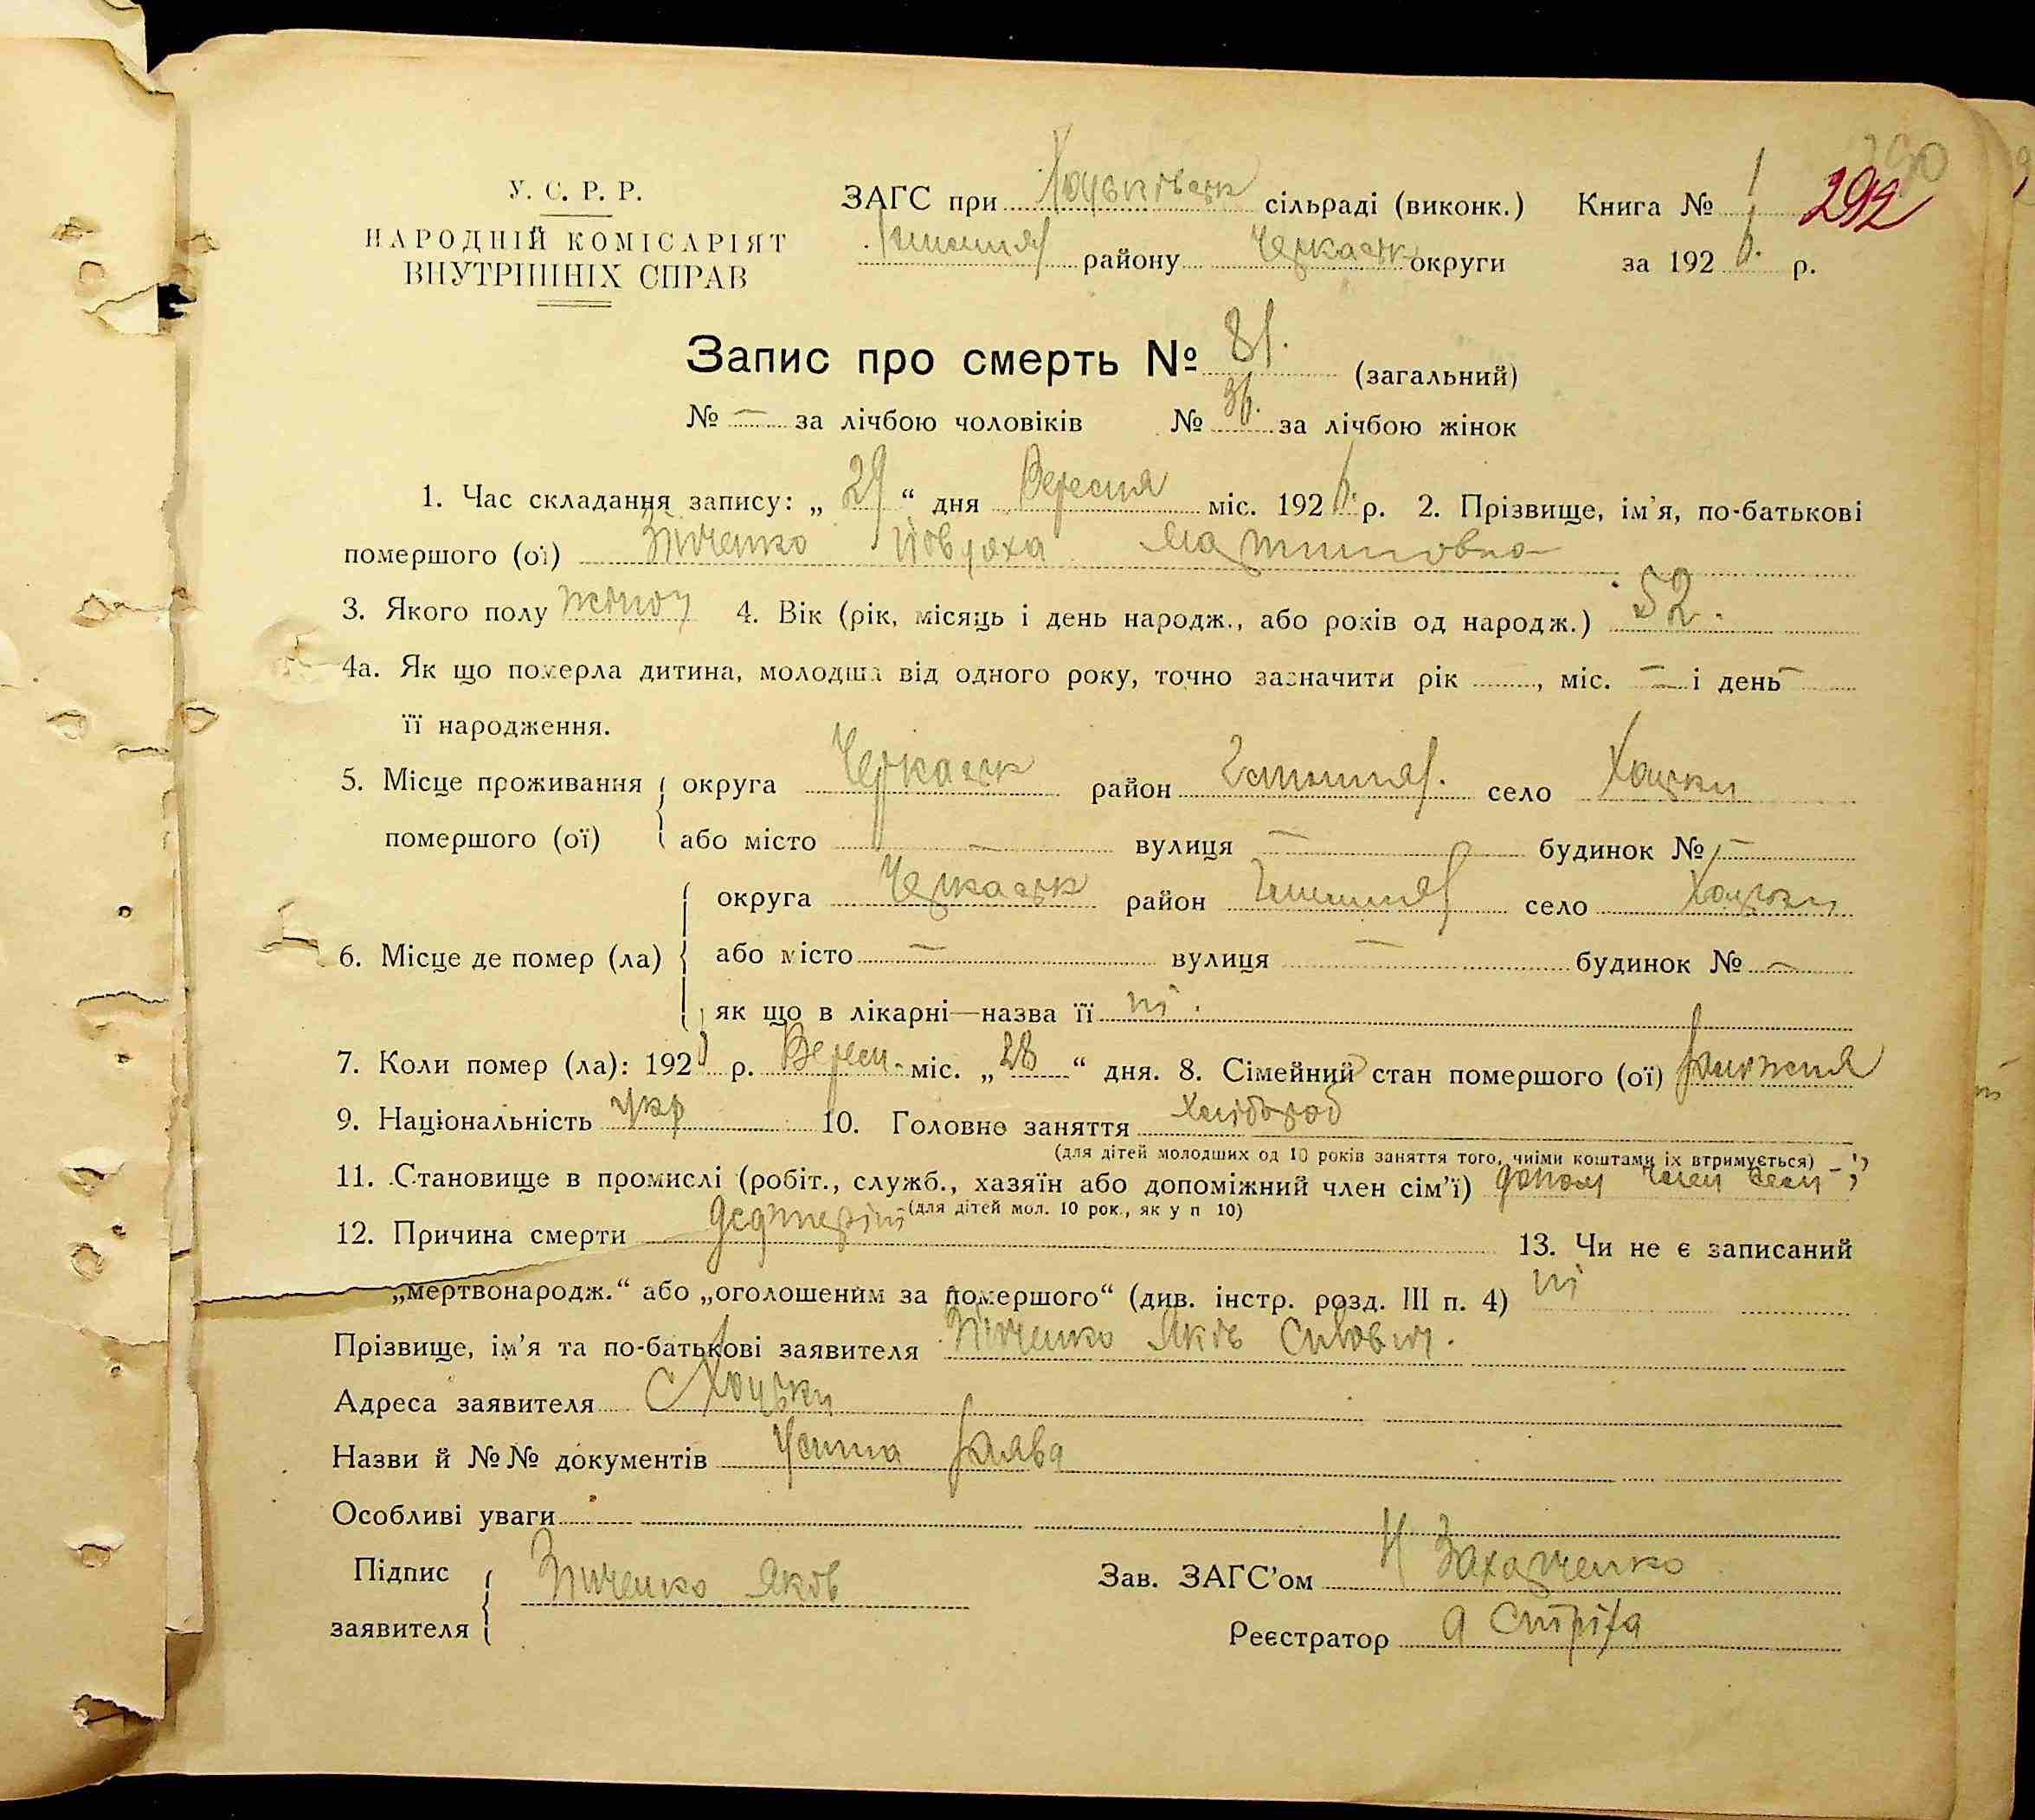 У. С. Р. Р.
НАРОДНІЙ КОМІСАРІЯТ
ВНУТРІШНІХ СПРАВ
ЗАГС при Хоцьківськ сільраді (виконк.) Книга № 1 292
району Черкаськ округи за 1926. р.
Запис про смерть № 81. (загальний)
№ — за лічбою чоловіків № 36. за лічбою жінок
1. Час складання запису: „29“ дня Вересня міс. 1926. р. 2. Прізвище, ім'я, по-батькові
помершого (ої) Зінченко
3. Якого полу жіноч 4. Вік (рік, місяць і день народж., або років од народж.) 52.
4а. Як що померла дитина, молодша від одного року, точно зазначити рік ....., міс. — і день —
її народження.
5. Місце проживання округа Черкаськ район село Хоцьки
помершого (ої) або місто — вулиця — будинок № —
округа Черкаськ район село Хоцьки
6. Місце де помер (ла) або місто — вулиця — будинок № —
як що в лікарні—назва її ні.
7. Коли помер (ла): 192 р. Вересн. міс. „28“ дня. 8. Сімейний стан помершого (ої)
9. Національність укр 10. Головне заняття Хлібороб
(для дітей молодших од 10 років заняття того, чиїми коштами їх втримується)
11. Становище в промислі (робіт., служб., хазяїн або допоміжний член сім'ї) допом член
(для дітей мол. 10 рок., як у п 10)
12. Причина смерти 13. Чи не є записаний
„мертвонародж.“ або „оголошеним за помершого“ (див. інстр. розд. III п. 4) ні
Прізвище, ім'я та по-батькові заявителя Зінченко Яків
Адреса заявителя С Хоцьки
Назви й №№ документів Устна заява
Особливі уваги
Підпис
заявителя Зінченко Яків
Зав. ЗАГС'ом Н Захарченко
Реєстратор А Стріха